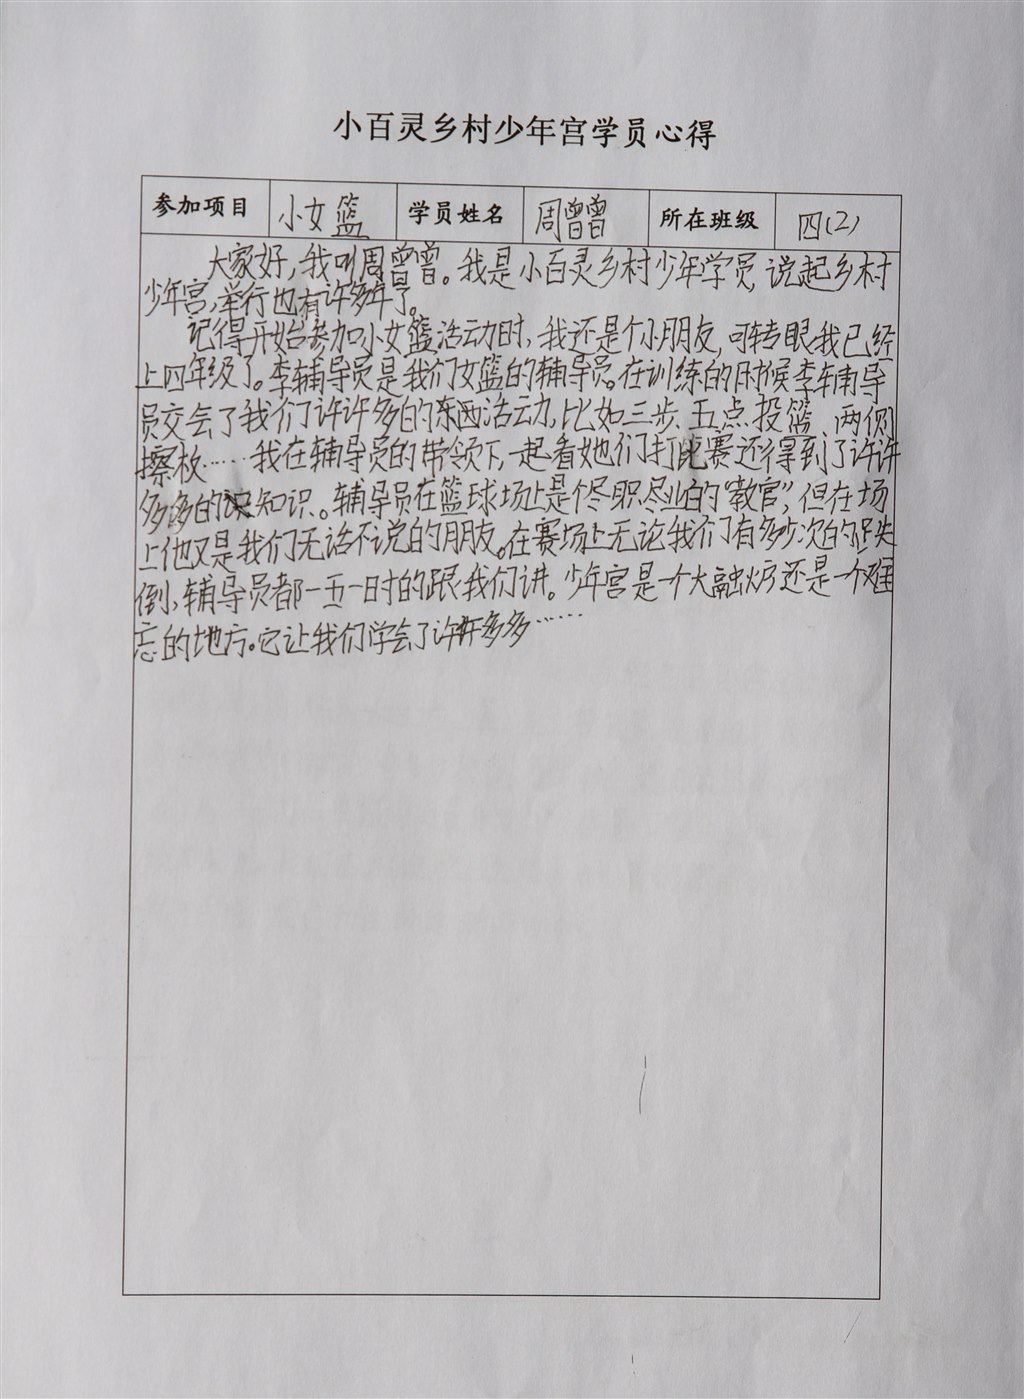 小百灵乡村少年宫学员心得
参加项目 小女篮 学员姓名 周曾曾 所在班级 四(2)
大家好,我叫周曾曾。我是小百灵乡村少年学员,说起乡村
少年宫,举行也有许多年了。
记得开始参加小女篮活动时,我还是个小朋友,可转眼我已经
上四年级了。李辅导员是我们女篮的辅导员。在训练的时候李辅导
员交会了我们许许多多的东西活动,比如三步、五点投篮、两侧
擦板……我在辅导员的带领下,一起看她们打比赛还得到了许许
多多的知识。辅导员在篮球场上是个尽职尽业的“教官”,但在场
上他又是我们无话不说的朋友。在赛场上无论我们有多少次的失
倒,辅导员都一五一时的跟我们讲。少年宫是一个大融炉还是一个难
忘的地方。它让我们学会了许许多多……